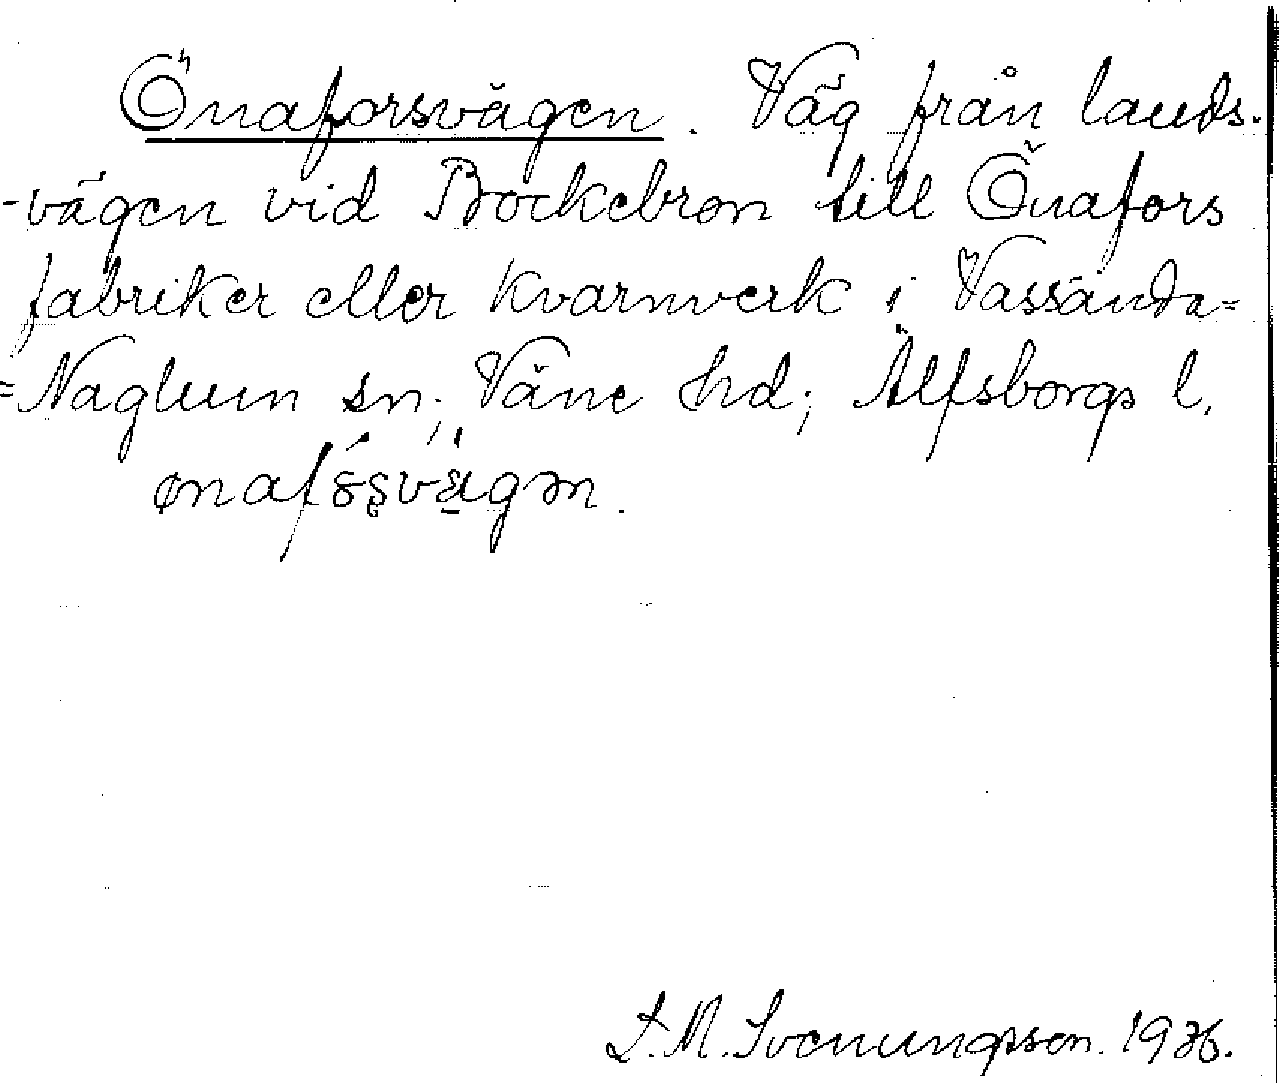 Önaforsvägen. Väg från lands-
-vägen vid Bockebron till Önafors
fabriker eller kvarnverk i Vassända=
=Naglum sn; Väne hd; Älfsborgs l.
L.M. Svenungsson. 1936.